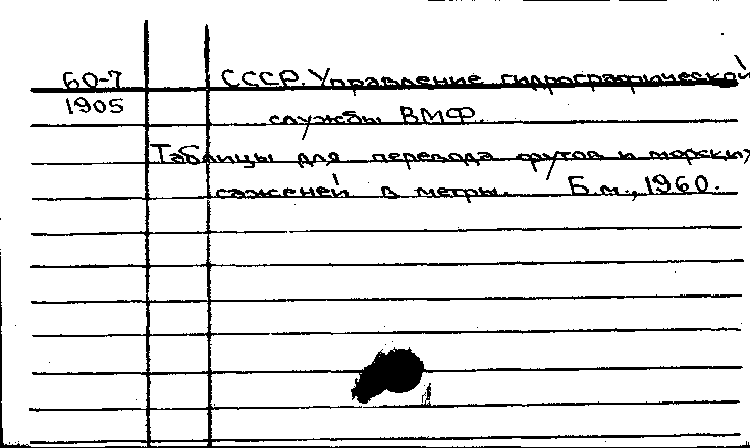 60-7
1905
СССР. Управление гидрографической
службы ВМФ.
Таблицы для перевода футов и морских
саженей в метры. Б.м., 1960.